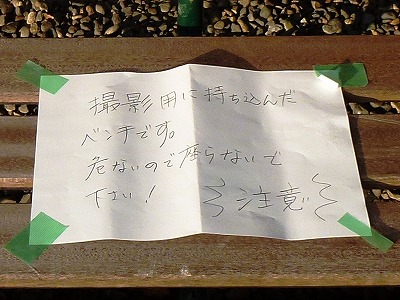 撮影用に持ち込んだ
ベンチです。
危ないので座らないで
下さい!
注意